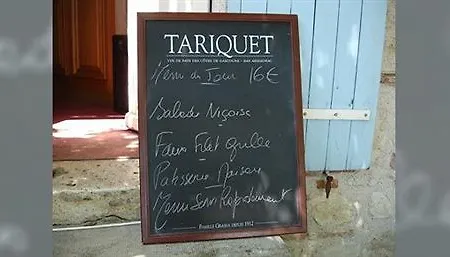 TARIQUET
VIN DE PAYS DES CÔTES DE GASCOGNE - BAS ARMAGNAC
Menu du Jour 16€
Salade Niçoise
Faux Filet grillé
Patisserie Maison
Menu servi Rapidement
FAMILLE GRASSA DEPUIS 1912